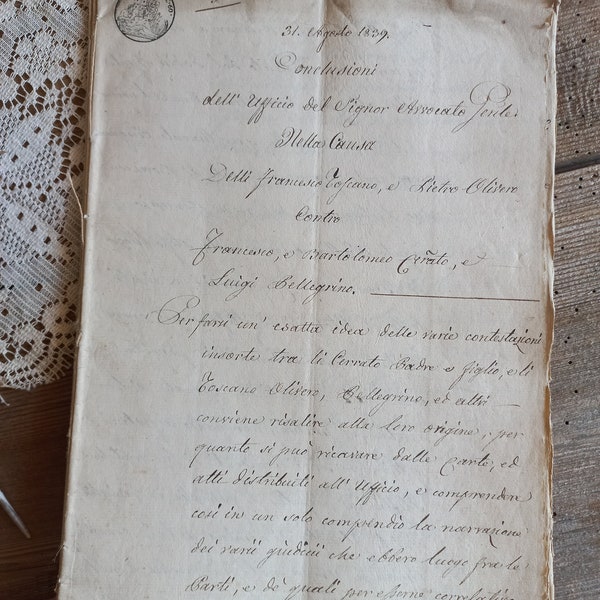 31. Agosto 1839.
Conclusioni
dell' Ufficio del Signor Avvocato Gen.le
Nella Causa
Delli Francesco Toscano, e Pietro Olivero
Contro
Francesco, e Bartolomeo Cerrato, e
Luigi Pellegrino.
Per farsi un' esatta idea delle varie contestazioni
insorte tra li Cerrato Padre e figlio, e li
Toscano Olivero, Pellegrino, ed altri
conviene risalire alla loro origine, per
quanto si può ricavare dalle carte, ed
atti distribuiti all' Ufficio, e comprendere
così in un solo compendio la narrazione
dei varii giudicii che ebbero luogo fra le
Parti, e de' quali per essere